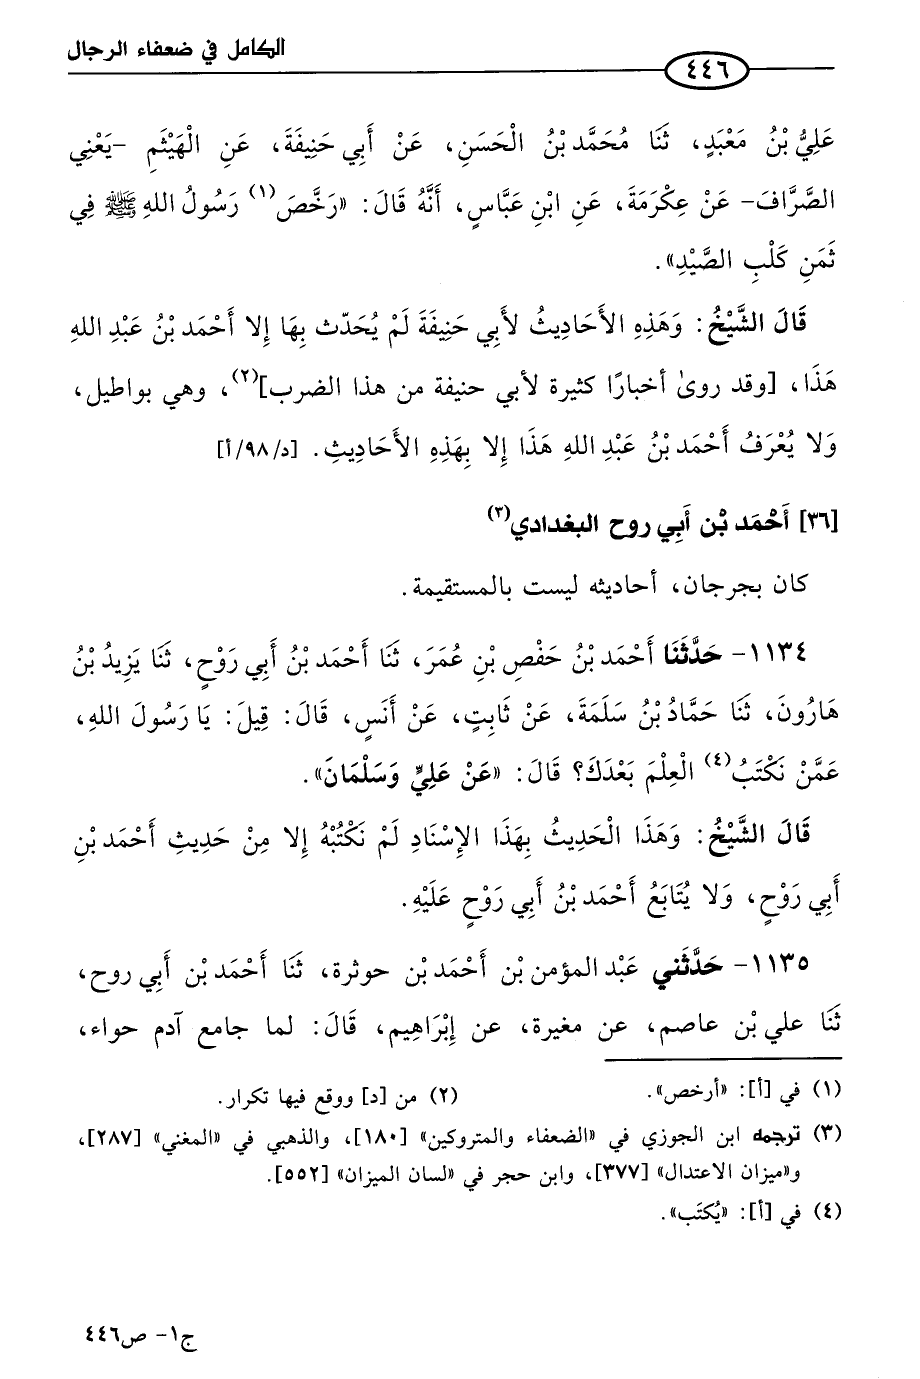 الكامل في ضعفاء الرجال
٤٤٦
عَلِيُّ بْنُ مَعْبَدٍ، ثَنَا مُحَمَّد بْنُ الْحَسَنِ، عَنْ أَبِي حَنِيفَةَ، عَنِ الْهَيْثَمِ –يَعْنِي
الصَّرَّافَ– عَنْ عِكْرِمَةَ، عَنِ ابْنِ عَبَّاسٍ، أَنَّهُ قَالَ: «رَخَّصَ(١) رَسُولُ اللهِ ﷺ فِي
ثَمَنِ كَلْبِ الصَّيْدِ».
قَالَ الشَّيْخُ: وَهَذِهِ الأَحَادِيثُ لأَبِي حَنِيفَةَ لَمْ يُحَدِّث بِهَا إِلا أَحْمَد بْنُ عَبْدِ اللهِ
هَذَا، [وقد روىٰ أخبارًا كثيرة لأبي حنيفة من هذا الضرب](٢)، وهي بواطيل،
وَلا يُعْرَفُ أَحْمَد بْنُ عَبْدِ اللهِ هَذَا إِلا بِهَذِهِ الأَحَادِيثِ. [د/٩٨/أ]
[٣٦] أَحْمَد بْن أَبِي روح البغدادي(٣)
كان بجرجان، أحاديثه ليست بالمستقيمة.
١١٣٤- حَدَّثَنَا أَحْمَد بْنُ حَفْصِ بْنِ عُمَرَ، ثَنَا أَحْمَد بْنُ أَبِي رَوْحٍ، ثَنَا يَزِيدُ بْنُ
هَارُونَ، ثَنَا حَمَّادُ بْنُ سَلَمَةَ، عَنْ ثَابِتٍ، عَنْ أَنَسٍ، قَالَ: قِيلَ: يَا رَسُولَ اللهِ،
عَمَّنْ نَكْتَبُ(٤) الْعِلْمَ بَعْدَكَ؟ قَالَ: «عَنْ عَلِيٍّ وَسَلْمَانَ».
قَالَ الشَّيْخُ: وَهَذَا الْحَدِيثُ بِهَذَا الإِسْنَادِ لَمْ نَكْتُبْهُ إِلا مِنْ حَدِيثِ أَحْمَد بْنِ
أَبِي رَوْحٍ، وَلا يُتَابَعُ أَحْمَد بْنُ أَبِي رَوْحٍ عَلَيْهِ.
١١٣٥- حَدَّثَني عَبْد المؤمن بْن أَحْمَد بْن حوثرة، ثَنَا أَحْمَد بْن أَبي روح،
ثَنَا علي بْن عاصم، عن مغيرة، عن إِبْرَاهِيم، قَالَ: لما جامع آدم حواء،
(١) في [أ]: «أرخص».
(٢) من [د] ووقع فيها تكرار.
(٣) ترجمه ابن الجوزي في «الضعفاء والمتروكين» [١٨٠]، والذهبي في «المغني» [٢٨٧]،
و«ميزان الاعتدال» [٣٧٧]، وابن حجر في «لسان الميزان» [٥٥٢].
(٤) في [أ]: «يُكتَب».
ج١- ص٤٤٦